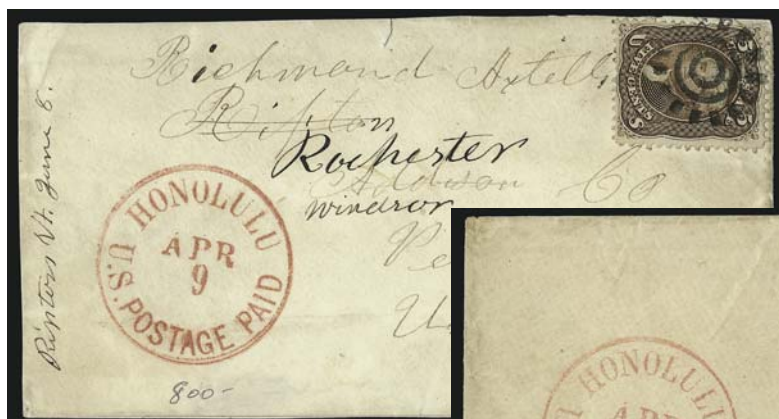 Richmond Axtell
Ripton
Rochester
Addison Co
Windsor
Ripton Vt. June 8.
HONOLULU
APR
9
U.S. POSTAGE PAID
800-
5
FIVE CENTS
U
5
HONOLULU